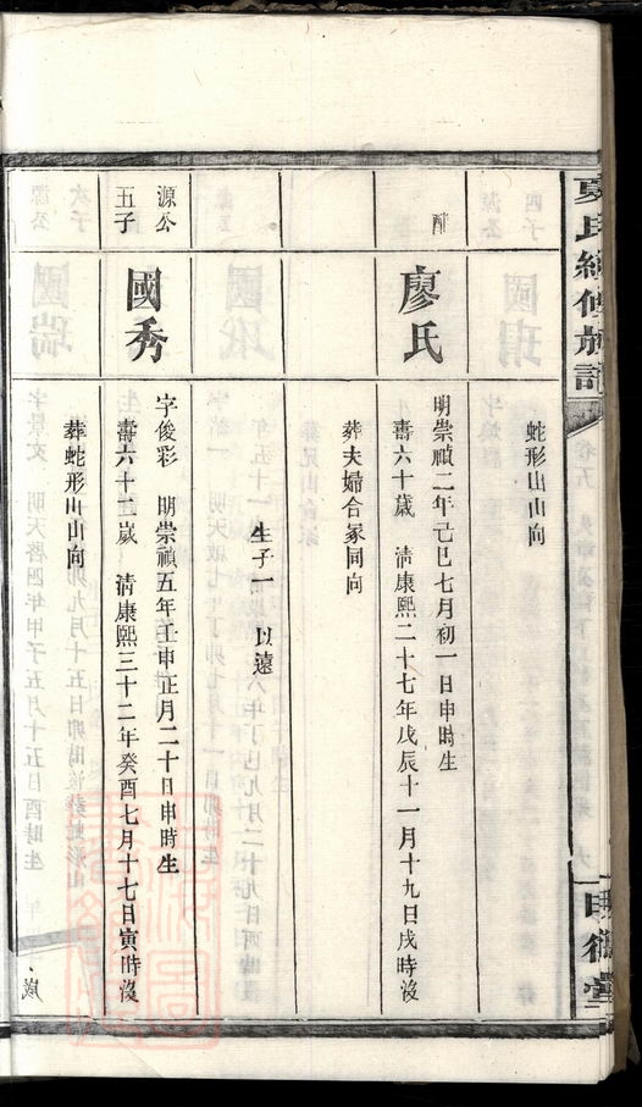 夏氏續修族譜
明德堂
蛇形山山向
配
廖氏
明崇禎二年己巳七月初一日申時生
壽六十歲 清康熙二十七年戊辰十一月十九日戌時沒
葬夫婦合冢同向
生子一 以遠
源公
五子
國秀
字俊彩 明崇禎五年壬申正月二十日申時生
壽六十二歲 清康熙三十二年癸酉七月十七日寅時沒
葬蛇形山山向